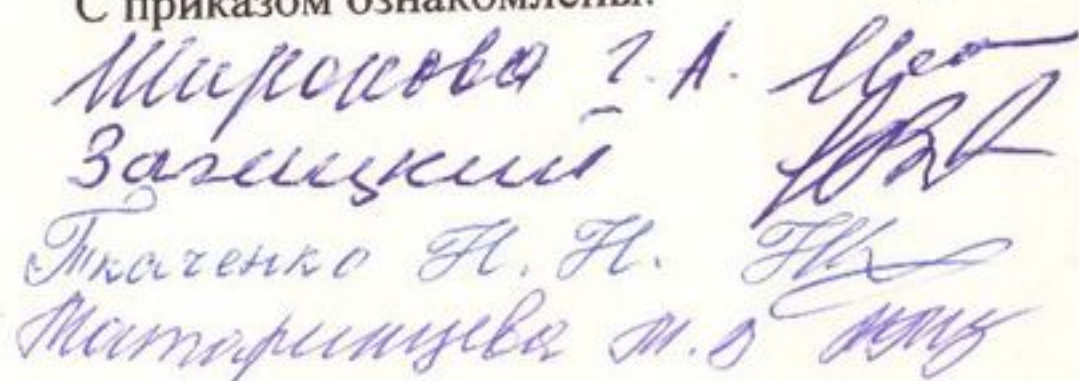 С приказом ознакомлены:
Широкова Г. А.
Загицкий
Ткаченко Н. Н.
Татаринцева Т. В